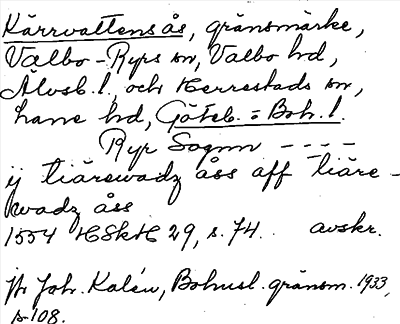 Kärrvattensås, gränsmärke,
Valbo-Ryrs sn, Valbo hd,
Älvsb. l. och Herrestads sn,
Lane hd, Göteb. o Boh. l.
Ryr Sognn ----
ij tiärewadz åss aff tiäre-
wadz åss
1554 HSkH 29, s. 74. avskr.
Jfr Joh. Kalén, Bohusl. gränsm. 1933,
s. 108.